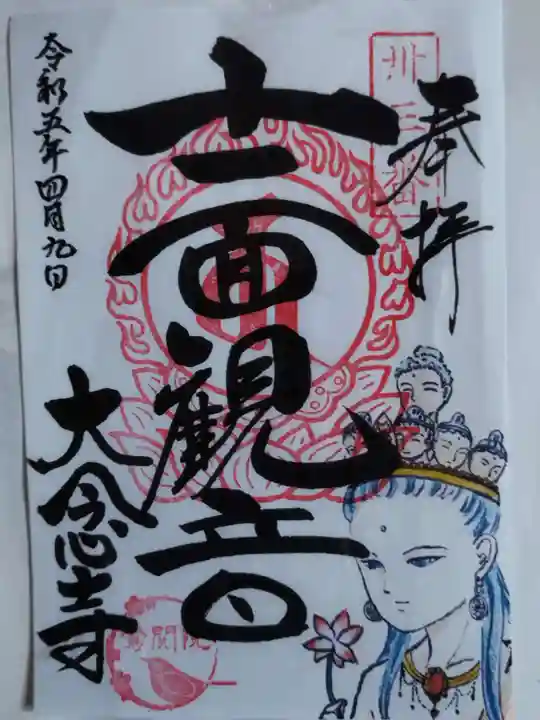 奉拝
卅三番
十一面観音
大念寺
令和五年四月九日